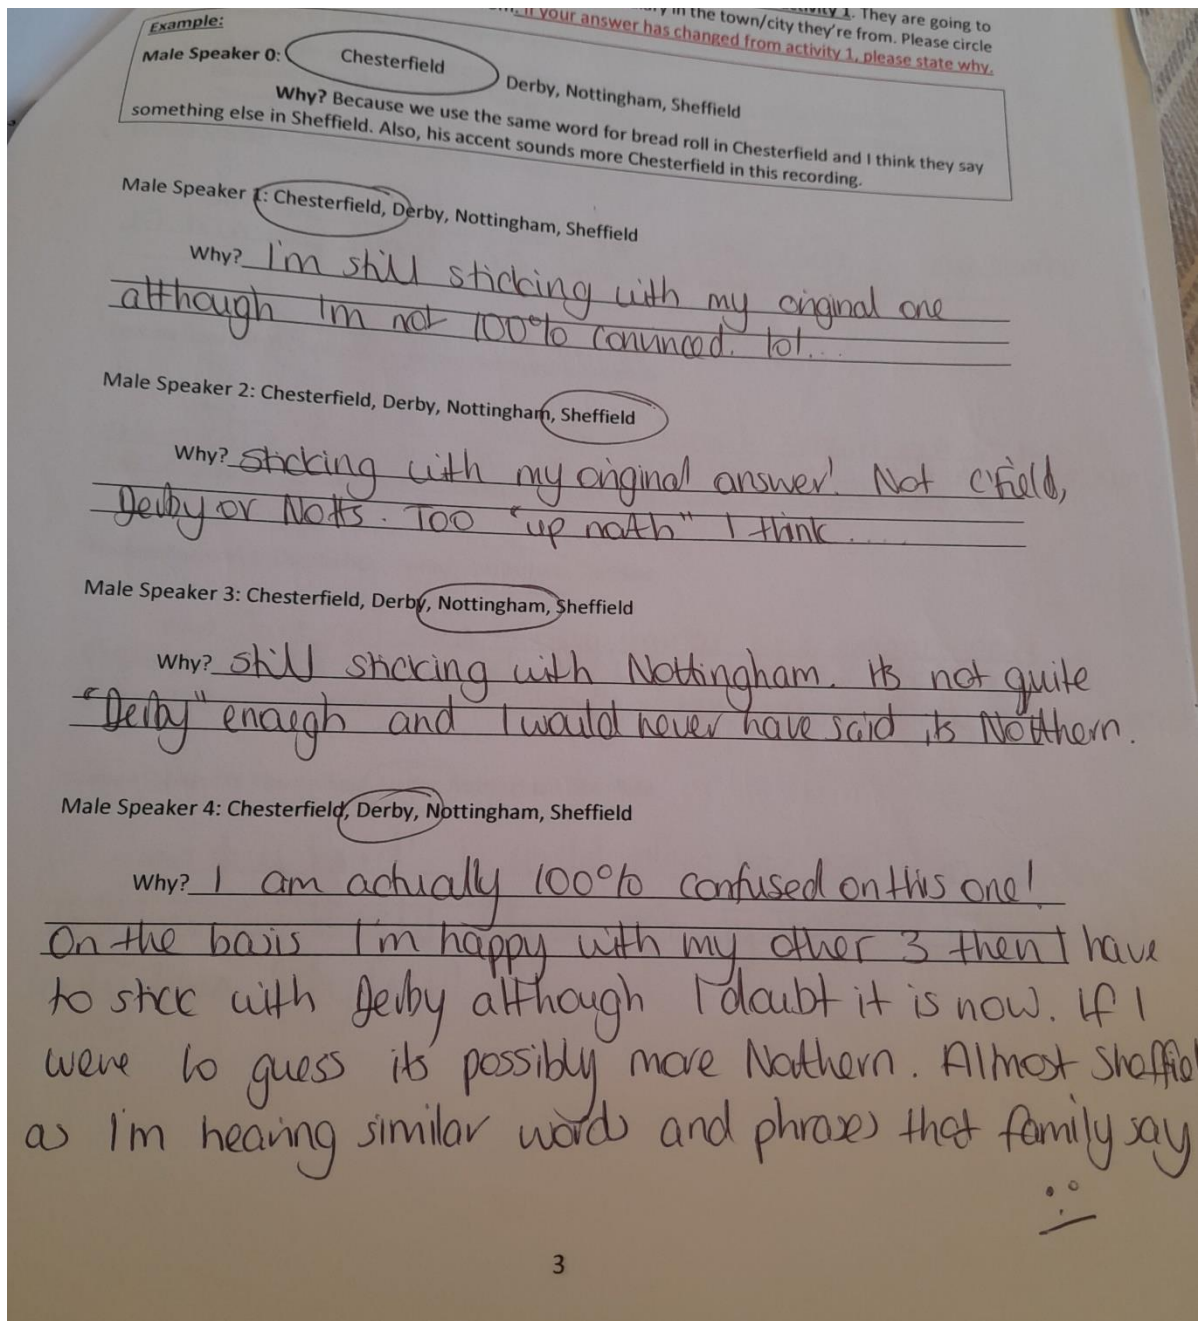 Activity 1. They are going to
in the town/city they're from. Please circle
if your answer has changed from activity 1, please state why.
Example:
Male Speaker 0: Chesterfield Derby, Nottingham, Sheffield
Why? Because we use the same word for bread roll in Chesterfield and I think they say
something else in Sheffield. Also, his accent sounds more Chesterfield in this recording.
Male Speaker 1: Chesterfield, Derby, Nottingham, Sheffield
Why? I'm still sticking with my original one
although I'm not 100% convinced. lol...
Male Speaker 2: Chesterfield, Derby, Nottingham, Sheffield
Why? Sticking with my original answer! Not C'field,
Derby or Notts. Too "up north" I think....
Male Speaker 3: Chesterfield, Derby, Nottingham, Sheffield
Why? Still sticking with Nottingham. Its not quite
"Derby" enough and I would never have said its Northern.
Male Speaker 4: Chesterfield, Derby, Nottingham, Sheffield
Why? I am actually 100% confused on this one!
On the basis I'm happy with my other 3 then I have
to stick with Derby although I doubt it is now. If I
were to guess its possibly more Northern. Almost Sheffiel
as I'm hearing similar words and phrases that family say
3